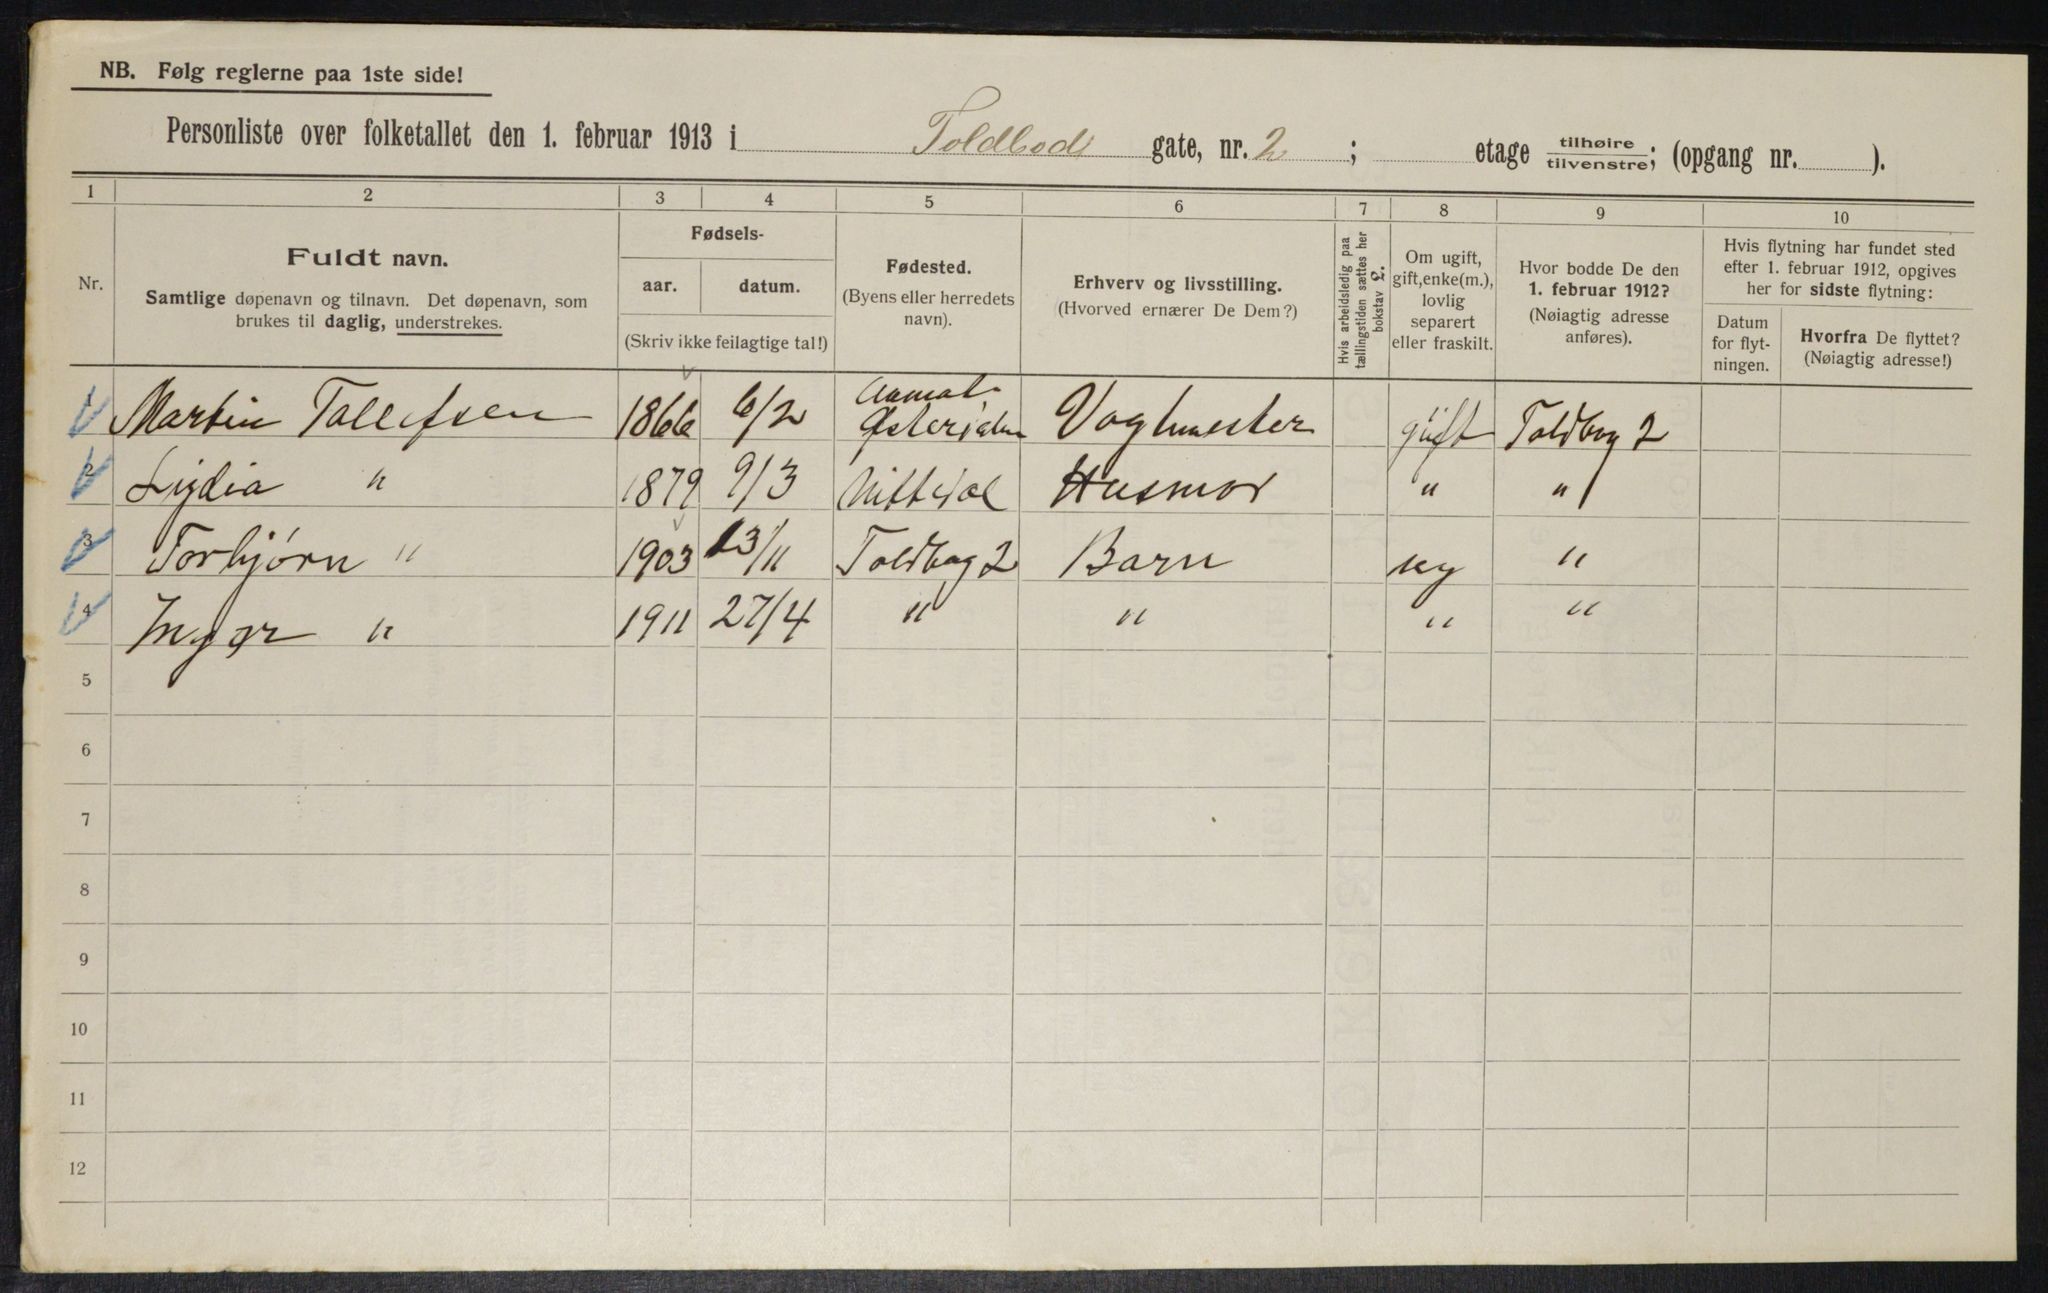 NB. Følg reglerne paa 1ste side!
Personliste over folketallet den 1. februar 1913 i Toldbod gate, nr. 2 ; etage tilhøire/tilvenstre; (opgang nr. ).
1 2 3 4 5 6 7 8 9 10
Nr.
Fuldt navn.
Samtlige døpenavn og tilnavn. Det døpenavn, som
brukes til daglig, understrekes.
Fødsels-
aar. datum.
(Skriv ikke feilagtige tal!)
Fødested.
(Byens eller herredets
navn).
Erhverv og livsstilling.
(Hvorved ernærer De Dem?)
Hvis arbeidsledig paa
tællingstiden sættes her
bokstav L.
Om ugift,
gift, enke(m.),
lovlig
separert
eller fraskilt.
Hvor bodde De den
1. februar 1912?
(Nøiagtig adresse
anføres).
Hvis flytning har fundet sted
efter 1. februar 1912, opgives
her for sidste flytning:
Datum
for flyt-
ningen.
Hvorfra De flyttet?
(Nøiagtig adresse!)
1 Martin Tollefsen 1866 6/2 Vagtmester gift Toldbog 2
2 Lydia " 1879 9/3 Nittedal Husmor " "
3 Torbjørn " 1903 13/11 Toldbog 2 Barn ug "
4 Inger " 1911 27/4 " " " "
5
6
7
8
9
10
11
12